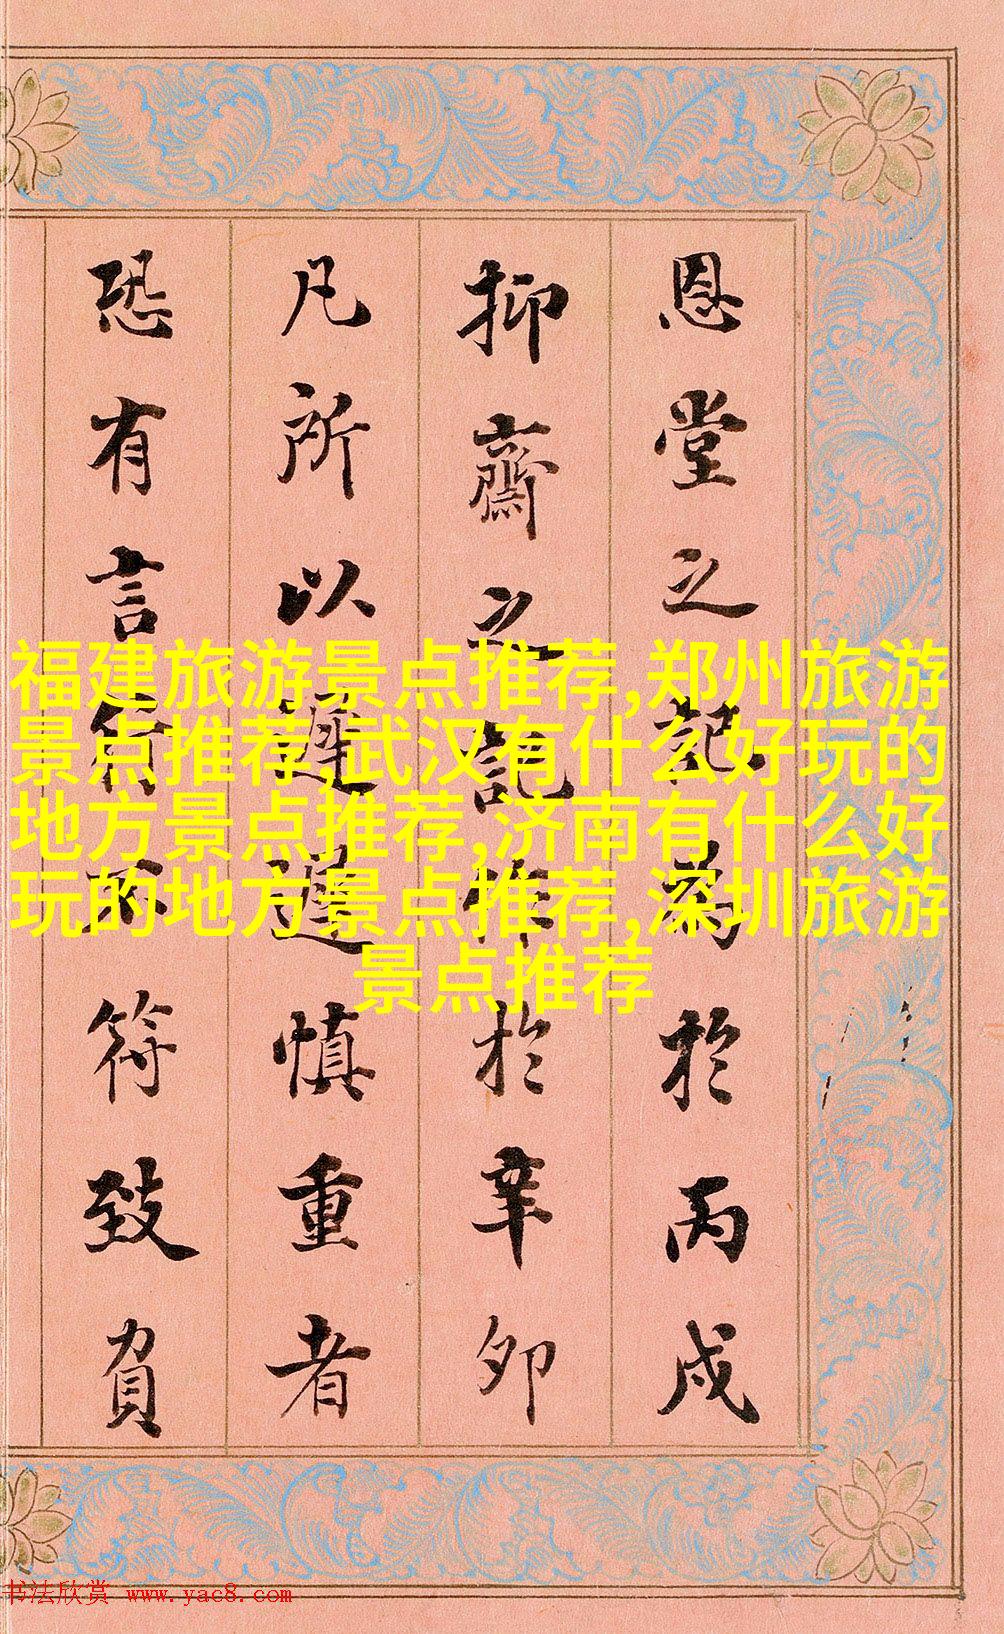 恩堂之記為於丙戌
抑齋之記作於辛卯
凡所以遲遲慎重者
恐有言行不符致負
福建旅游景点推荐,郑州旅游
景点推荐,武汉有什么好玩的
地方景点推荐,济南有什么好
玩的地方景点推荐,深圳旅游
景点推荐
书法欣赏 www.yac8.com